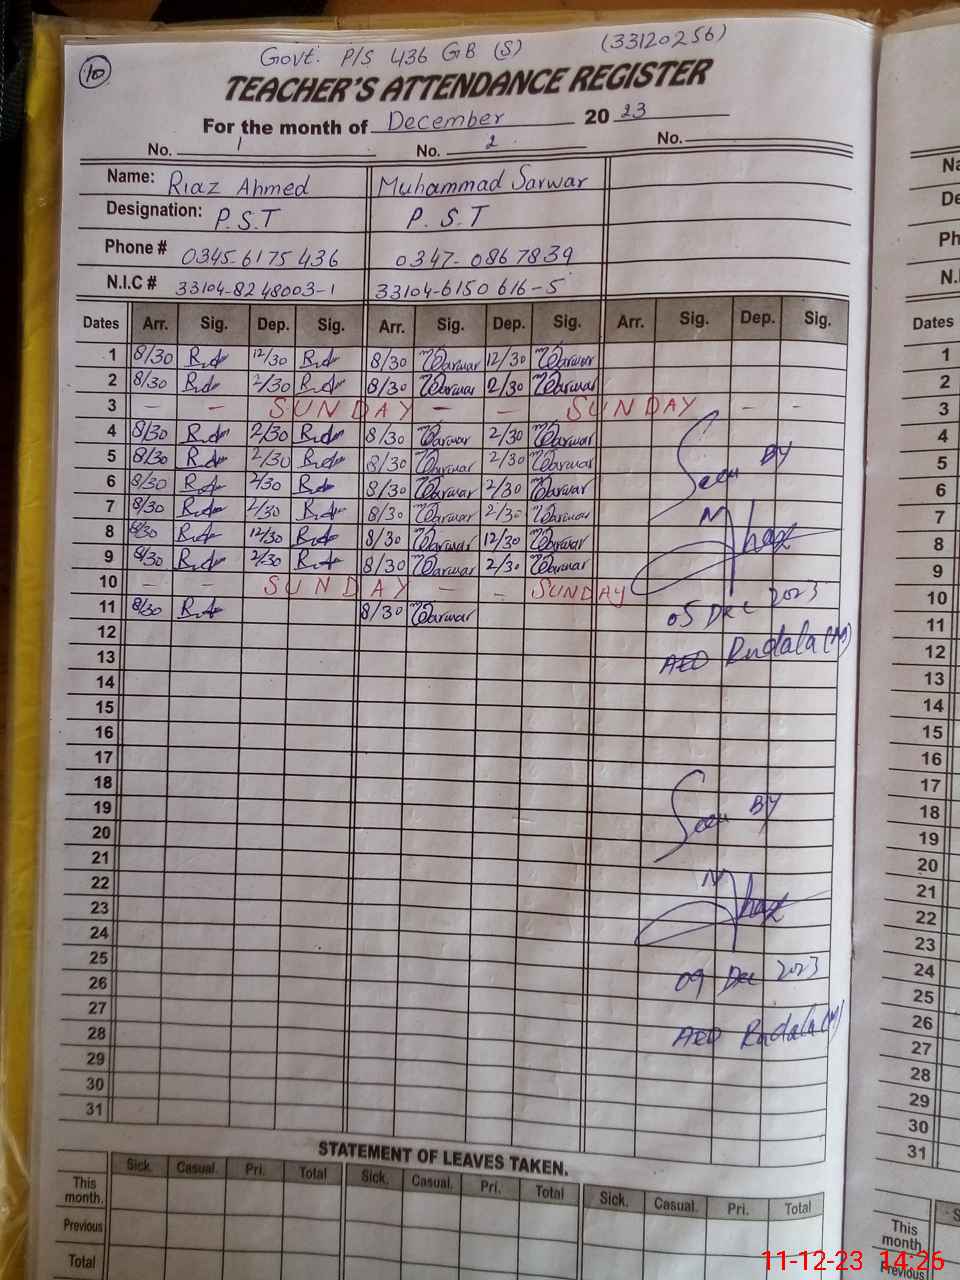 10
Govt: P/S 436 GB (S) (33120256)
TEACHER'S ATTENDANCE REGISTER
For the month of December 2023
No. 1 No. 2 No.
Name: Riaz Ahmed Muhammad Sarwar
Designation: P.S.T P.S.T
Phone # 0345-6175436 0347-0867839
N.I.C # 33104-8248003-1 33104-6150616-5
Dates Arr. Sig. Dep. Sig. Arr. Sig. Dep. Sig. Arr. Sig. Dep. Sig.
1 8/30 12/30 8/30 Sarwar 12/30 Sarwar
2 8/30 2/30 8/30 Sarwar 2/30 Sarwar
3 — — SUNDAY — — SUNDAY — —
4 8/30 2/30 8/30 Sarwar 2/30 Sarwar
5 8/30 2/30 8/30 Sarwar 2/30 Sarwar
6 8/30 2/30 8/30 Sarwar 2/30 Sarwar
7 8/30 2/30 8/30 Sarwar 2/30 Sarwar
8 8/30 12/30 8/30 Sarwar 12/30 Sarwar
9 8/30 2/30 8/30 Sarwar 2/30 Sarwar
10 — — SUNDAY — — SUNDAY
11 8/30 8/30 Sarwar
12
13
14
15
16
17
18
19
20
21
22
23
24
25
26
27
28
29
30
31
Seen By
05 Dec 2023
AEO (M)
Seen By
09 Dec 2023
AEO (M)
STATEMENT OF LEAVES TAKEN.
Sick. Casual. Pri. Total Sick. Casual. Pri. Total Sick. Casual. Pri. Total
This month.
Previous
Total
Na
De
Ph
N.I
Dates
1
2
3
4
5
6
7
8
9
10
11
12
13
14
15
16
17
18
19
20
21
22
23
24
25
26
27
28
29
30
31
This month
Previous
11-12-23 14:26